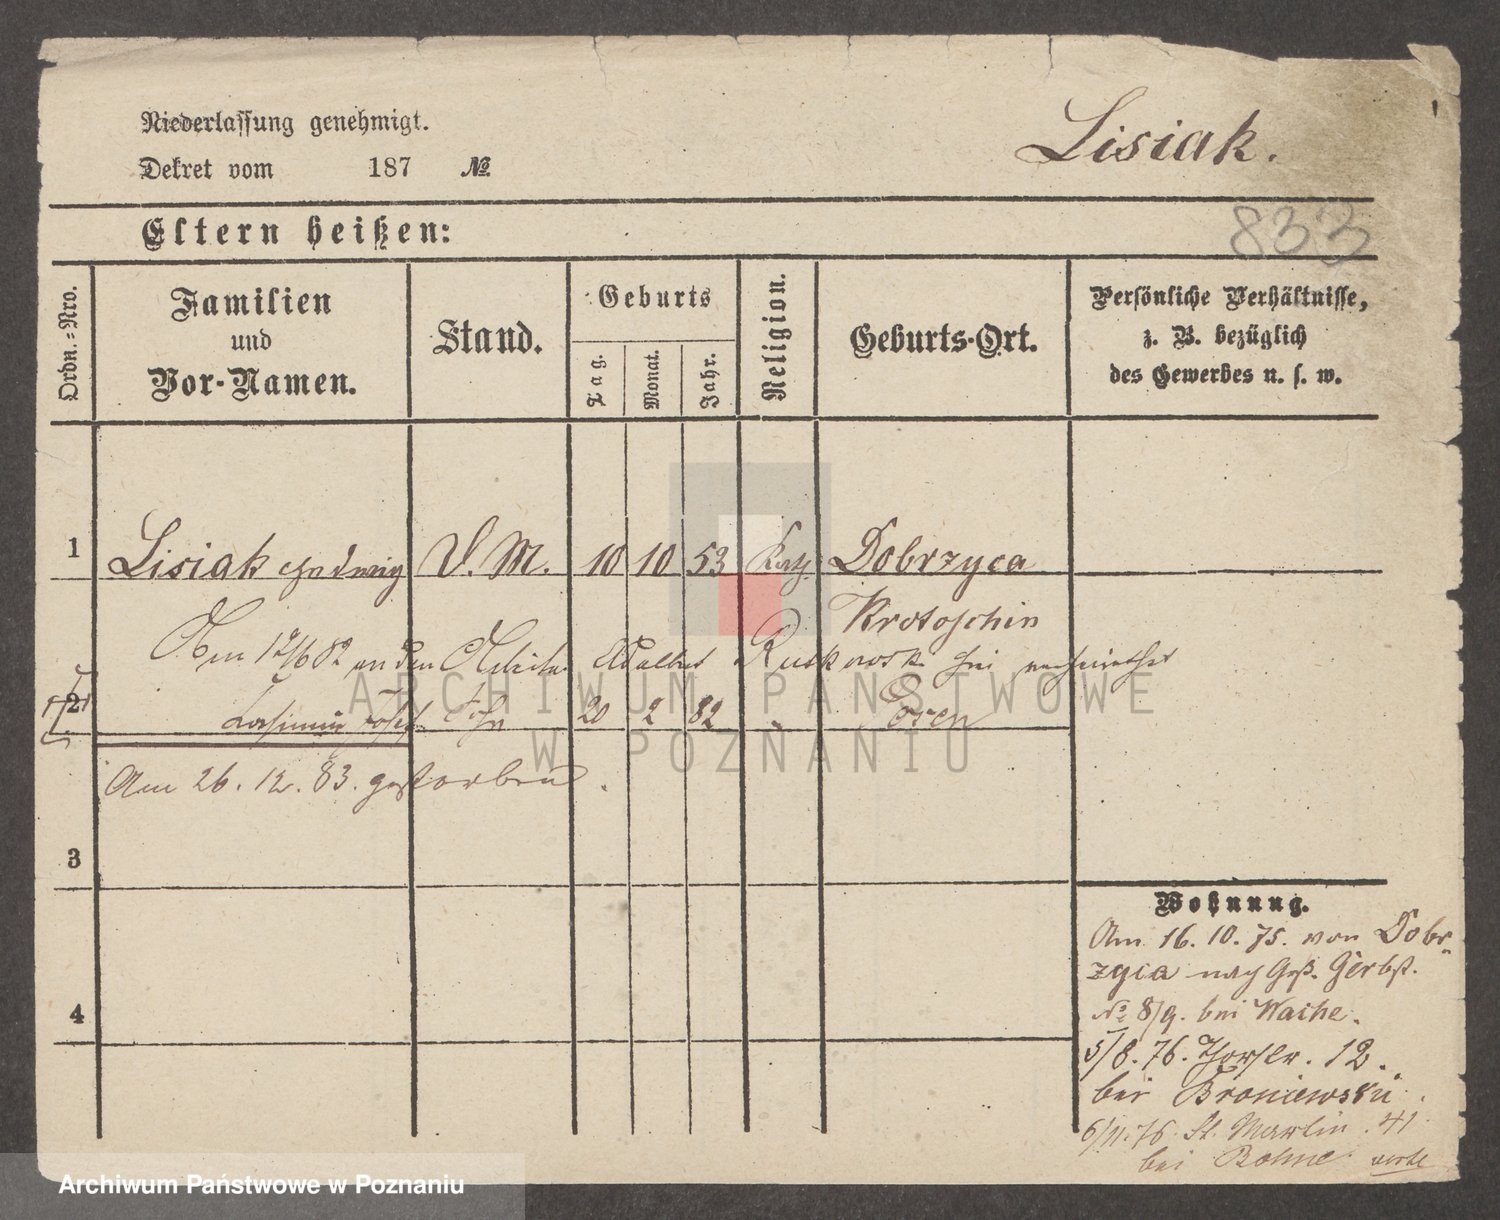 Niederlassung genehmigt.
Dekret vom 187 №
Lisiak.
833
Eltern heißen:
Ordn.=Nro.
Familien
und
Vor-Namen.
Stand.
Geburts
Tag.
Monat.
Jahr.
Religion.
Geburts-Ort.
Persönliche Verhältnisse,
z. B. bezüglich
des Gewerbes u. s. w.
1 Lisiak Hedwig D. M. 10 10 53 Kath. Dobrzyca
Krotoschin
Am 82 an den Adalbert hier verheirathet
2 Josef Sohn 20 2 82 Posen
Am 26. 12. 83. gestorben.
3
4
Wohnung.
Am 16. 10. 75. von Dobr-
zyca nach Gerbst.
№ 8/9. bei
5/8. 76. Thorstr. 12.
bei Broniewski.
6/11. 76. St. Martin. 41
bei
ARCHIWUM PAŃSTWOWE
W POZNANIU
Archiwum Państwowe w Poznaniu